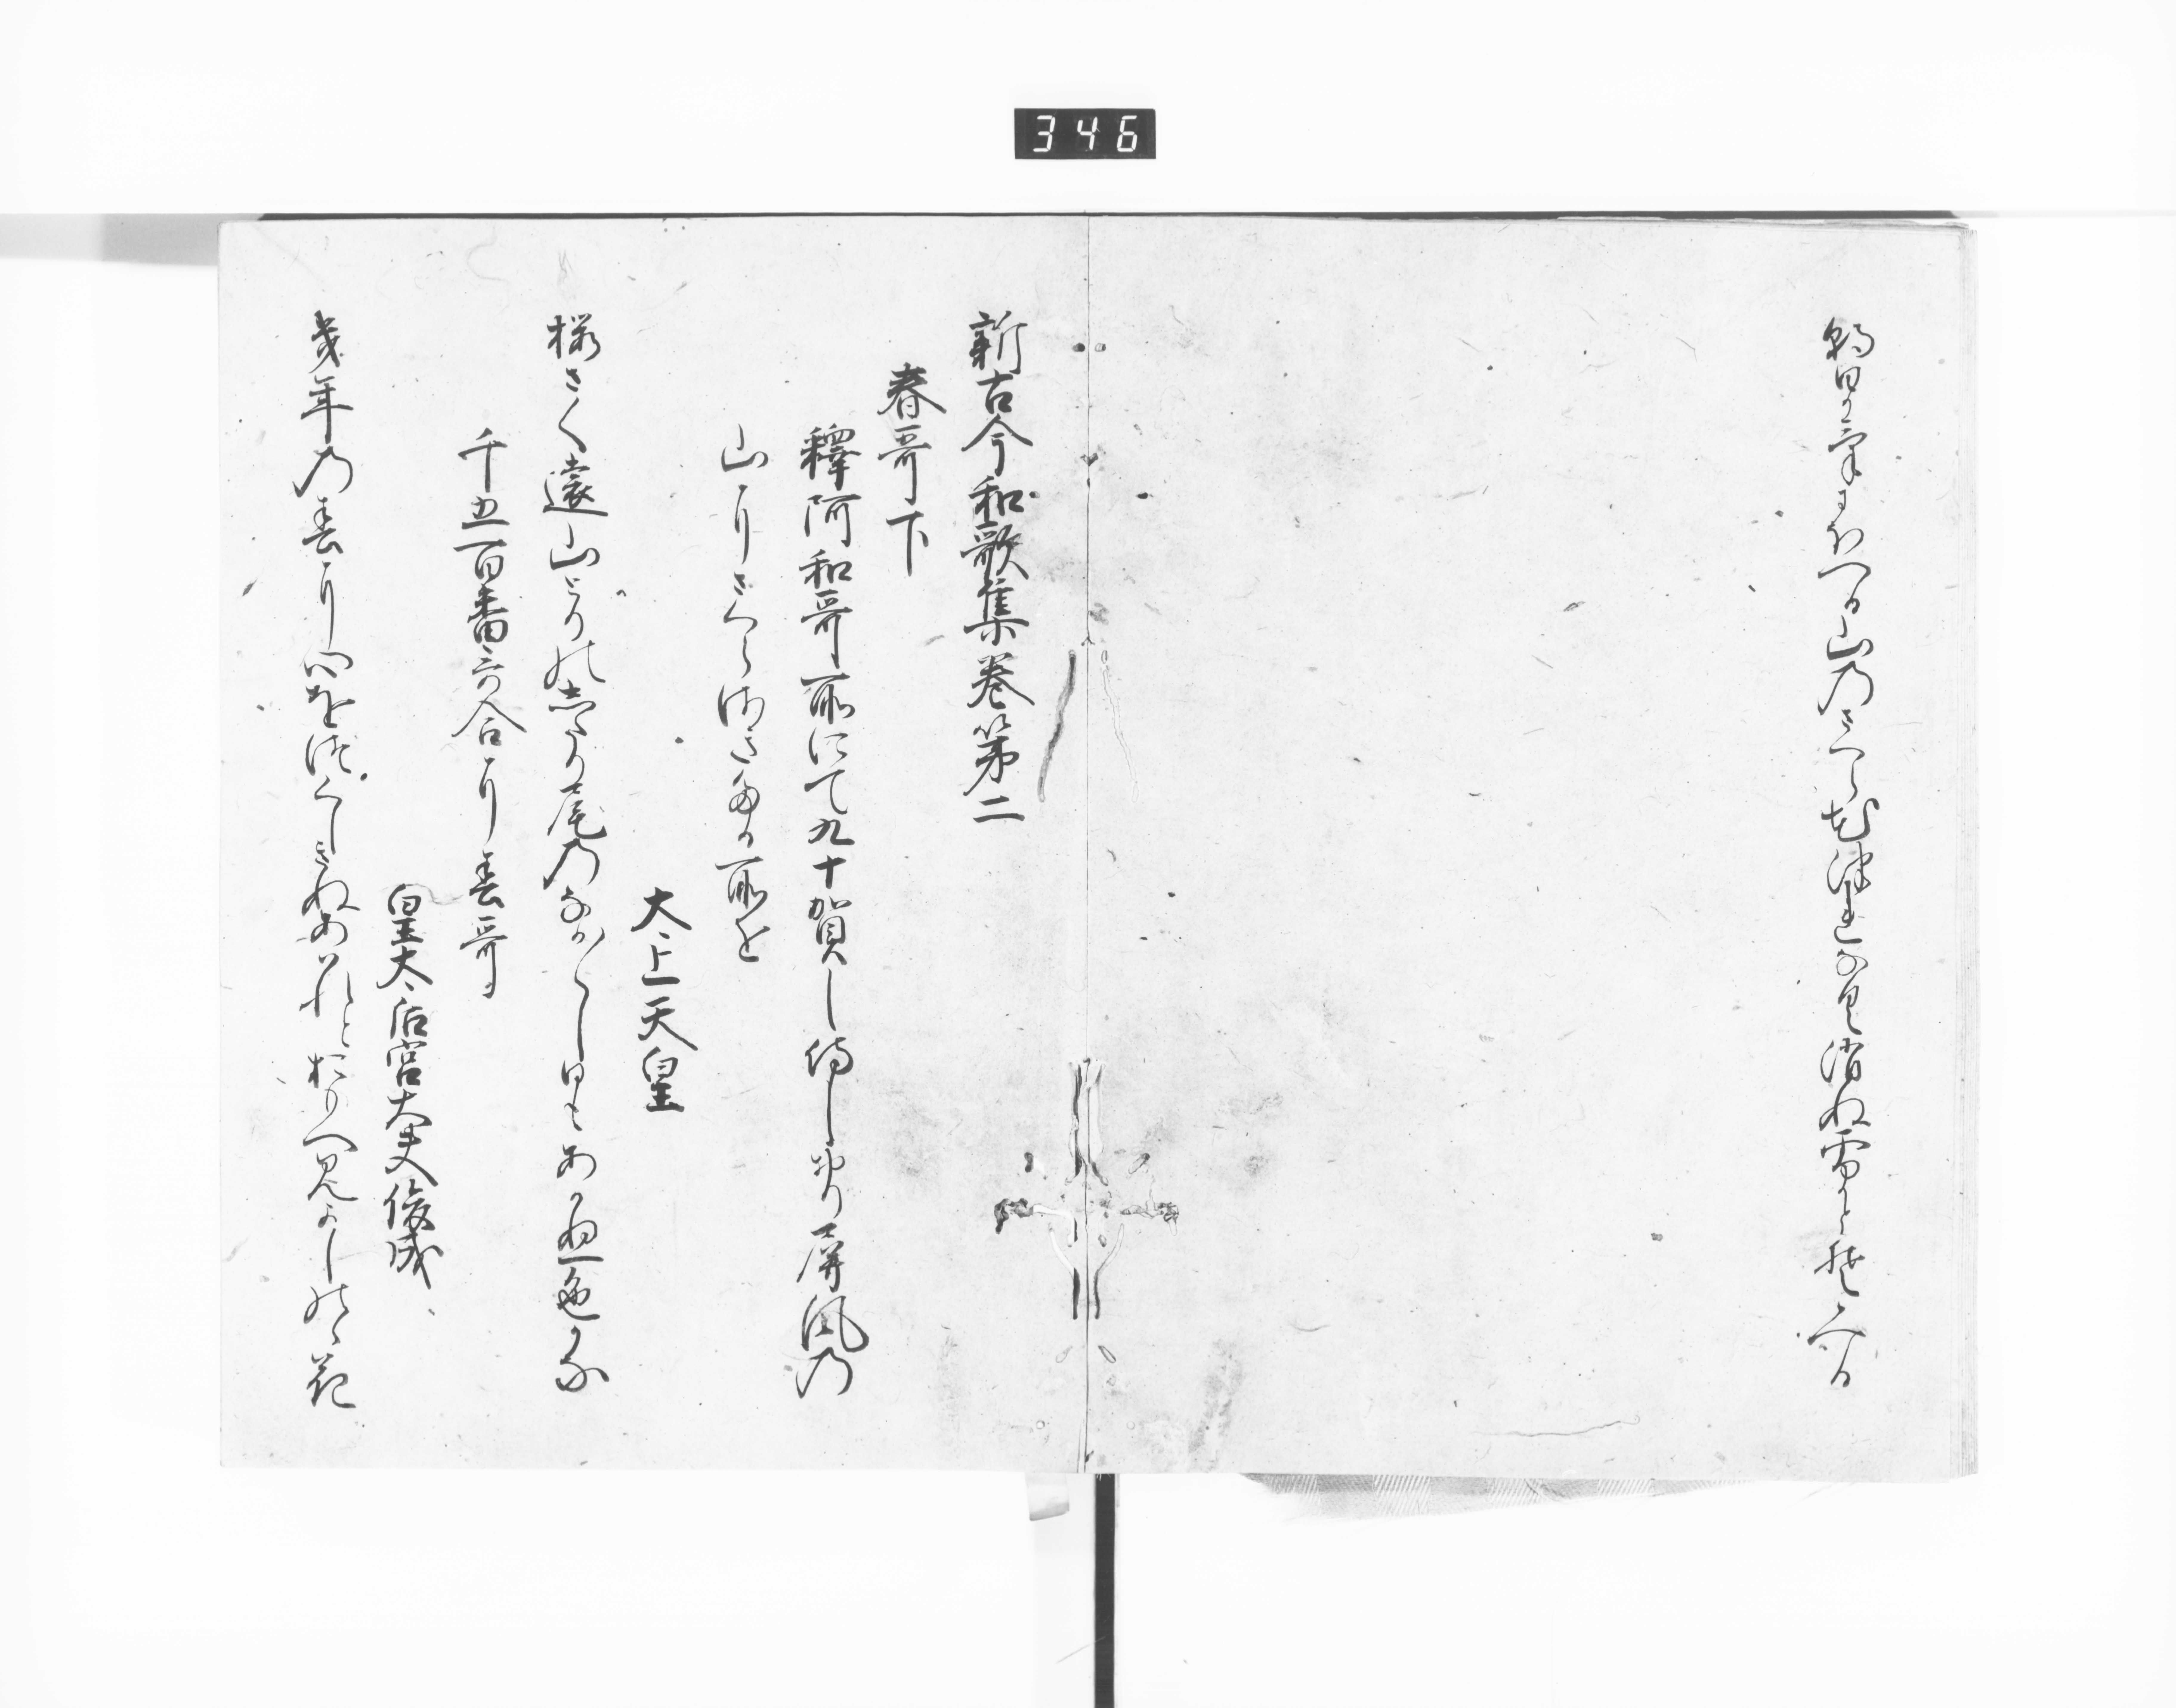 346
朝日かけにほへる山のさくら花つれなくきえぬ雪かとそみる
新古今和歌集巻第二
春哥下
釋阿和哥所にて九十賀し侍しおり屏風の
山にさくらさきたる所を
太上天皇
桜さく遠山とりのしたり尾のなか〳〵し日もあかぬ色かな
千五百番哥合に春哥
皇太后宮大夫俊成
幾年の春に心をつくしきぬあはれとおもへみよしのゝ花